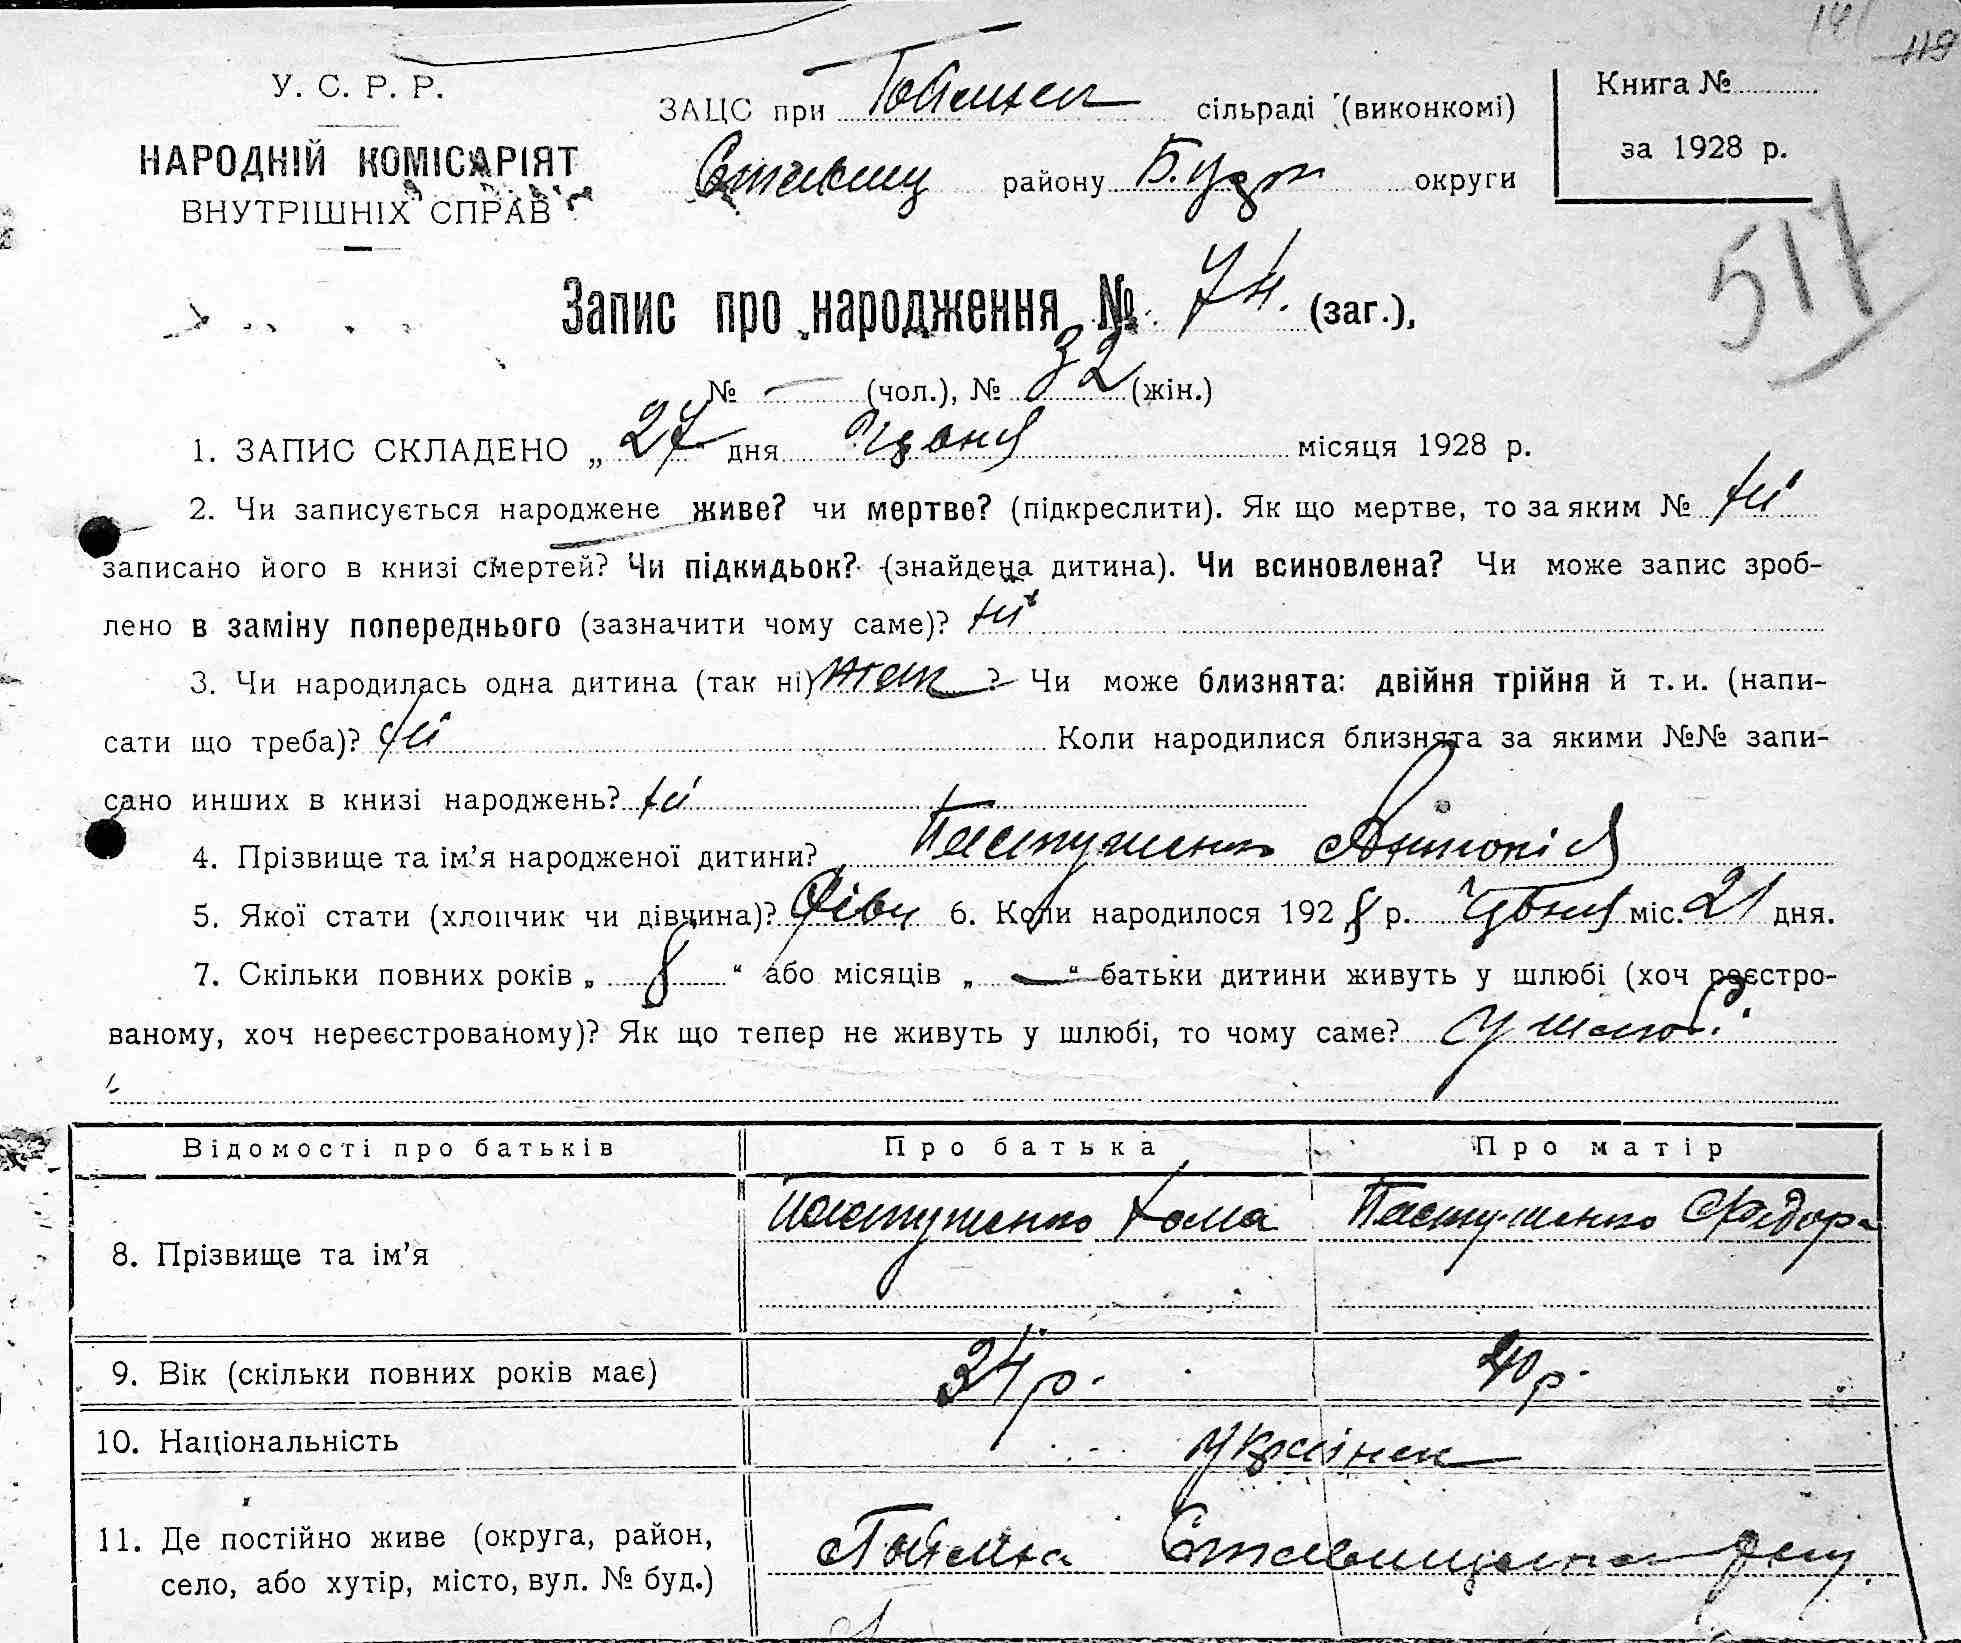 119
У. С. Р. Р.
НАРОДНІЙ КОМІСАРІЯТ
ВНУТРІШНІХ СПРАВ
ЗАЦС при сільраді (виконкомі)
району округи
Книга №
за 1928 р.
517
Запис про народження № 74. (заг.),
№ — (чол.), № 32 (жін.)
1. ЗАПИС СКЛАДЕНО „ 27 дня місяця 1928 р.
2. Чи записується народжене живе? чи мертве? (підкреслити). Як що мертве, то за яким № ні
записано його в книзі смертей? Чи підкидьок? (знайдена дитина). Чи всиновлена? Чи може запис зроб-
лено в заміну попереднього (зазначити чому саме)? ні
3. Чи народилась одна дитина (так ні) так ? Чи може близнята: двійня трійня й т. и. (напи-
сати що треба)? ні Коли народилися близнята за якими №№ запи-
сано инших в книзі народжень? ні
4. Прізвище та ім’я народженої дитини? Пастушенко Антонія
5. Якої стати (хлопчик чи дівчина)? дівч 6. Коли народилося 1928 р. міс. 21 дня.
7. Скільки повних років „ 8 “ або місяців „ — “ батьки дитини живуть у шлюбі (хоч реєстро-
ваному, хоч нереєстрованому)? Як що тепер не живуть у шлюбі, то чому саме? у шлюбі
Відомості про батьків Про батька Про матір
8. Прізвище та ім’я Пастушенко Хома Пастушенко
9. Вік (скільки повних років має) 34 р. 40 р.
10. Національність
11. Де постійно живе (округа, район,
село, або хутір, місто, вул. № буд.)